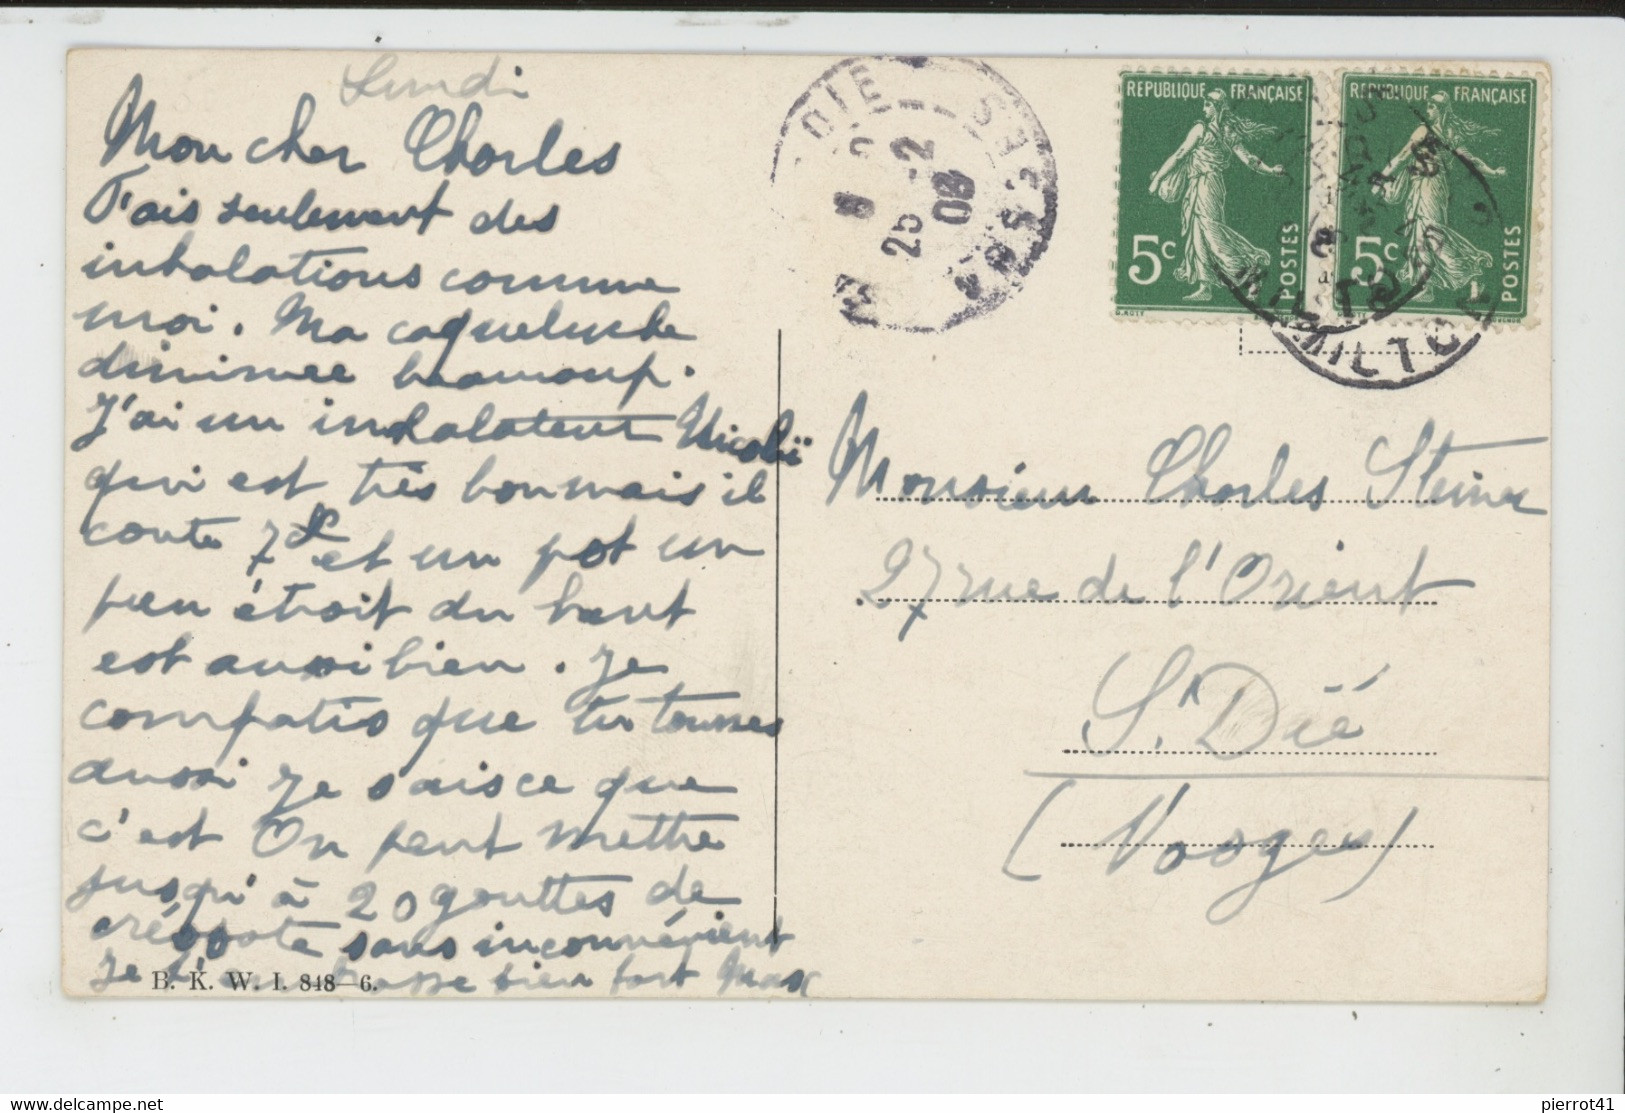 Lundi
Mon cher Charles
Fais seulement des
inhalations comme
moi. Ma coqueluche
diminue beaucoup.
J'ai un inhalateur Nicolaï
qui est très bon mais il
coute 7f et un pot un
peu étroit du haut
est aussi bien. Je
compatis que tu tousses
aussi je sais ce que
c'est On peut mettre
jusqu'à 20 gouttes de
créosote sans inconvénient
Je t'embrasse bien fort Max
B. K. W. I. 848—6.
DIE
25 -2
08
VOSGES
REPUBLIQUE FRANÇAISE
5c
POSTES
REPUBLIQUE FRANÇAISE
5c
POSTES
Monsieur Charles Steiner
27 rue de l'Orient
St Dié
(Vosges)
delcampe.net
pierrot41